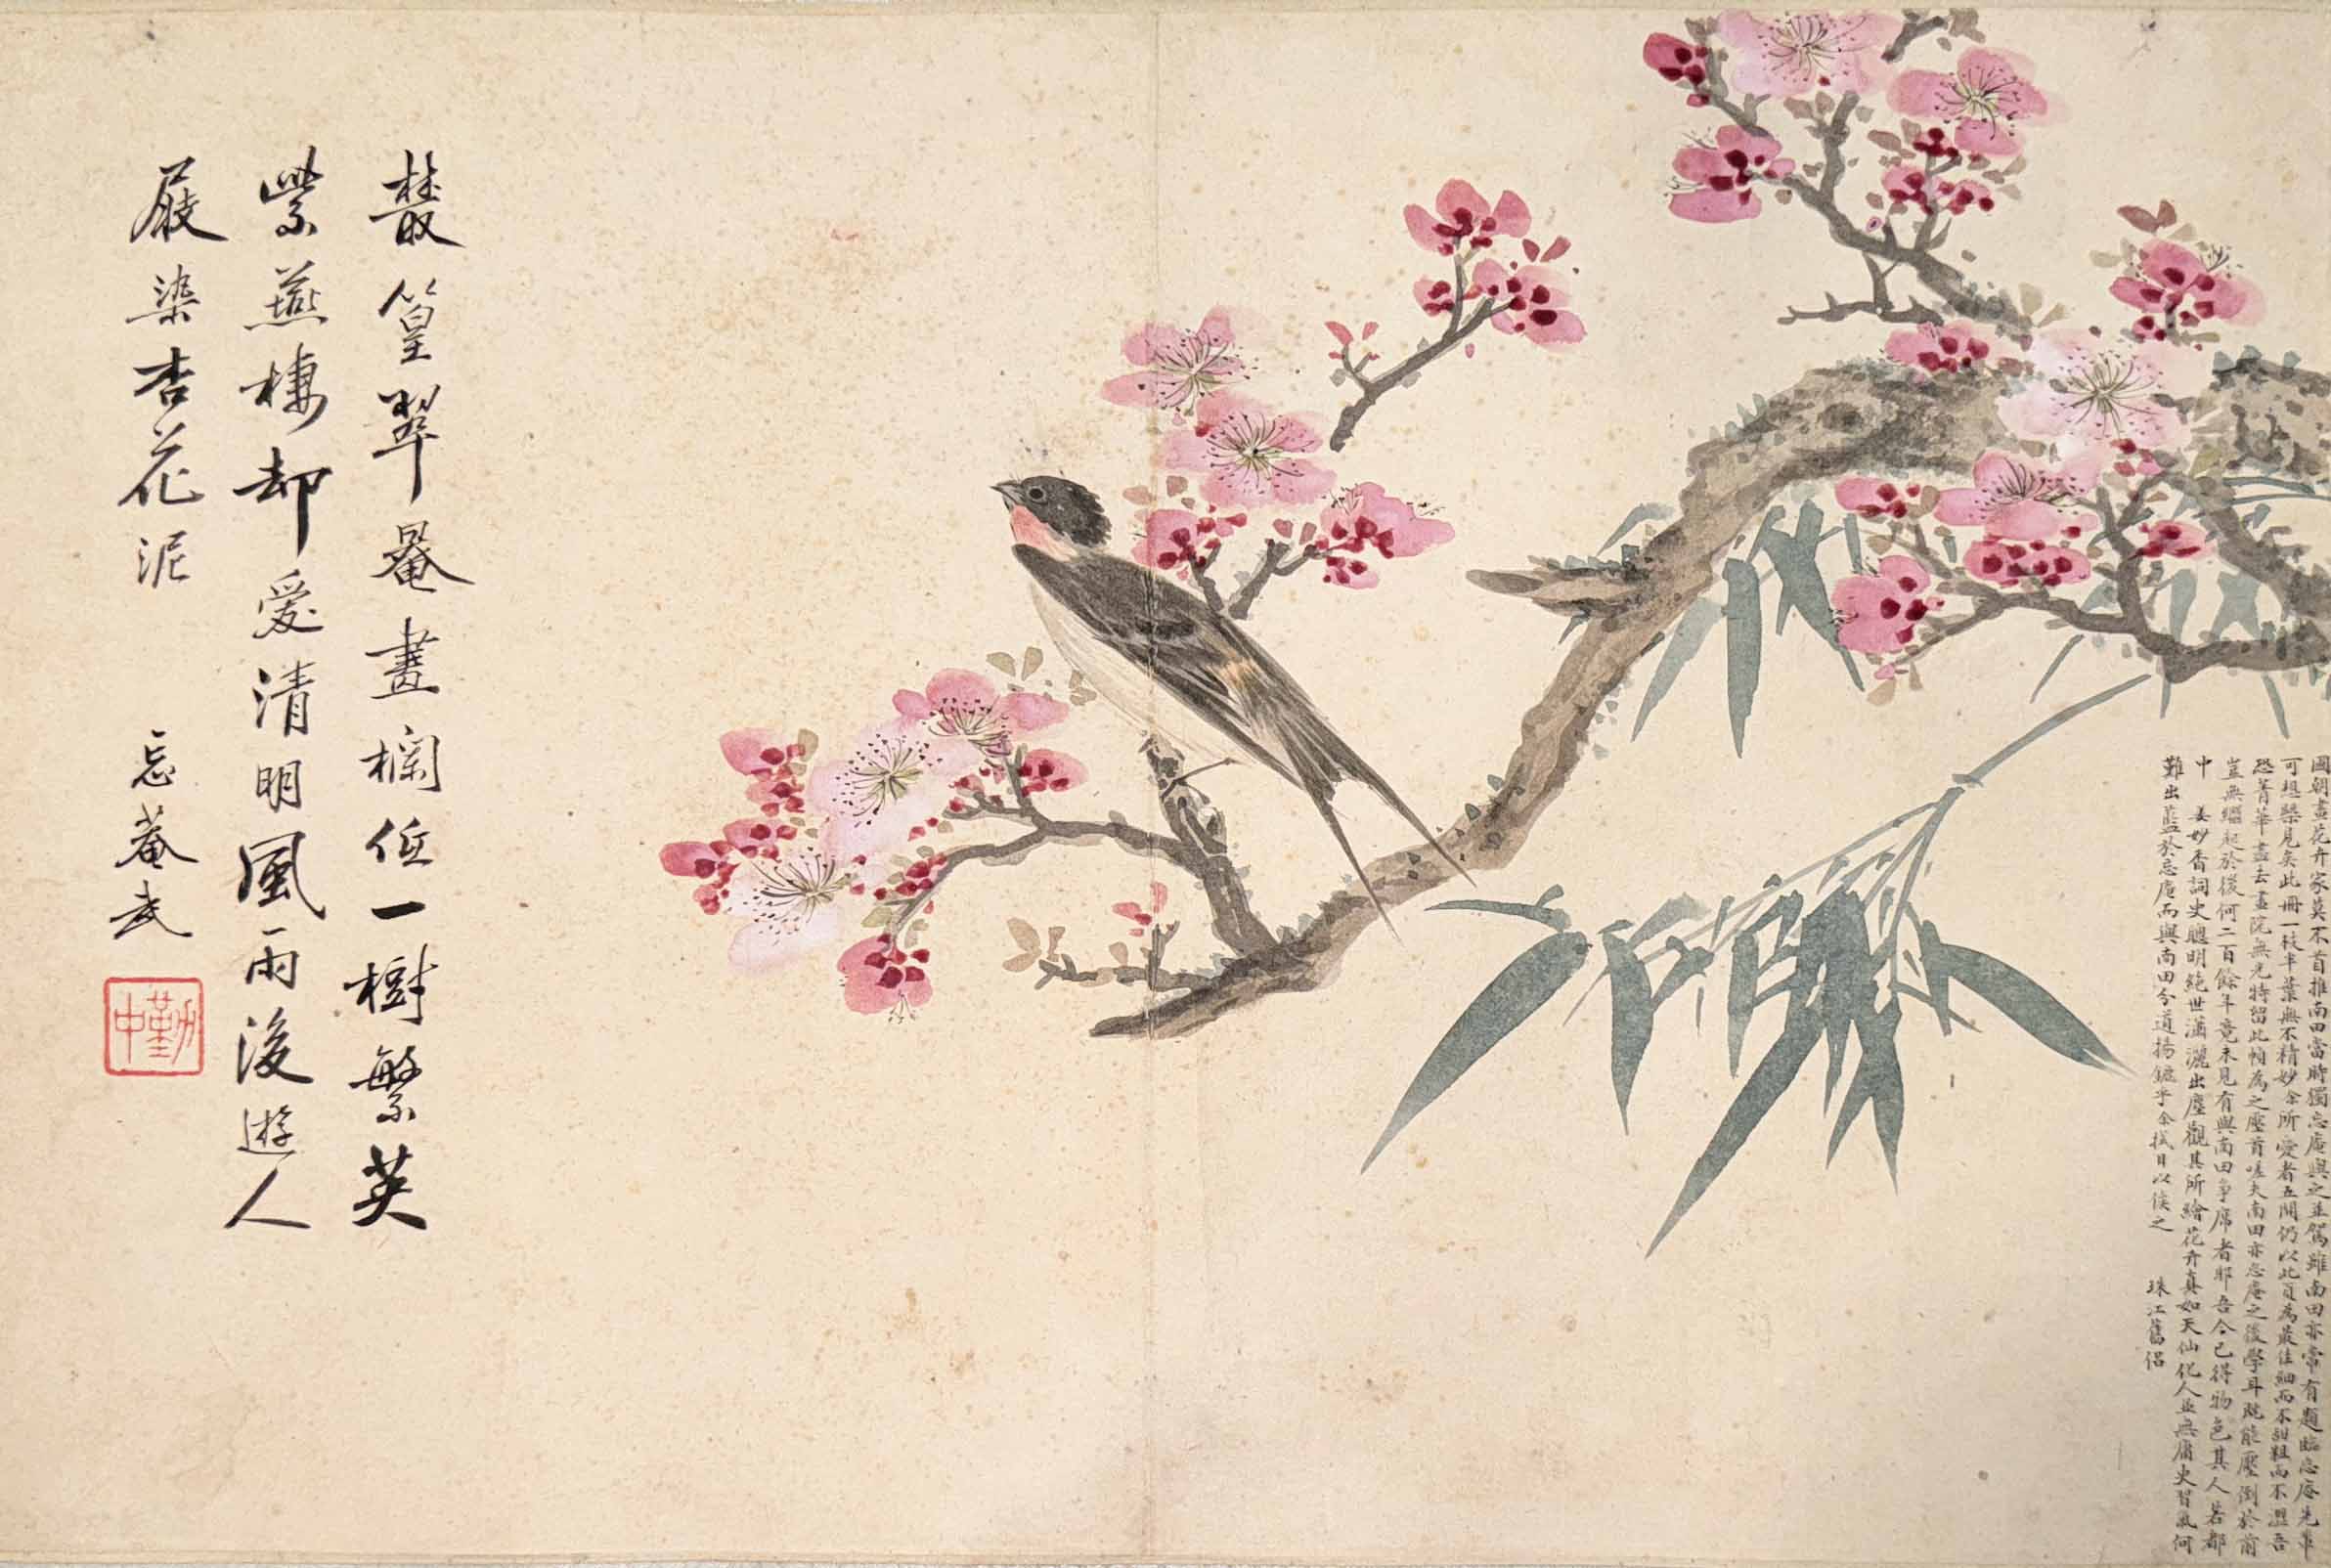 國朝畫花卉家莫不首推南田當時獨忘庵與之並駕雖南田亦常有題臨忘庵先輩
可想槩見矣此冊一枝半葉無不精妙余所愛者五開仍以此頁為最佳細而不甜粗而不澀吾
恐菁華盡去畫院無光特留此幀為之壓首嗟夫南田亦忘庵之後學耳既能壓倒於前
豈無繼起於後何二百餘年竟未見有與南田爭席者耶吾今已得物色其人若都
中 姜妙香詞史聰明絕世瀟灑出塵觀其所繪花卉真如天仙化人並無庸史習氣何
難出藍於忘庵而與南田分道揚鑣乎余拭目以俟之 珠江舊侶
叢篁翠罨畫欄低一樹繁英
紫燕棲却愛清明風雨後遊人
屐染杏花泥 忘菴武
勤中